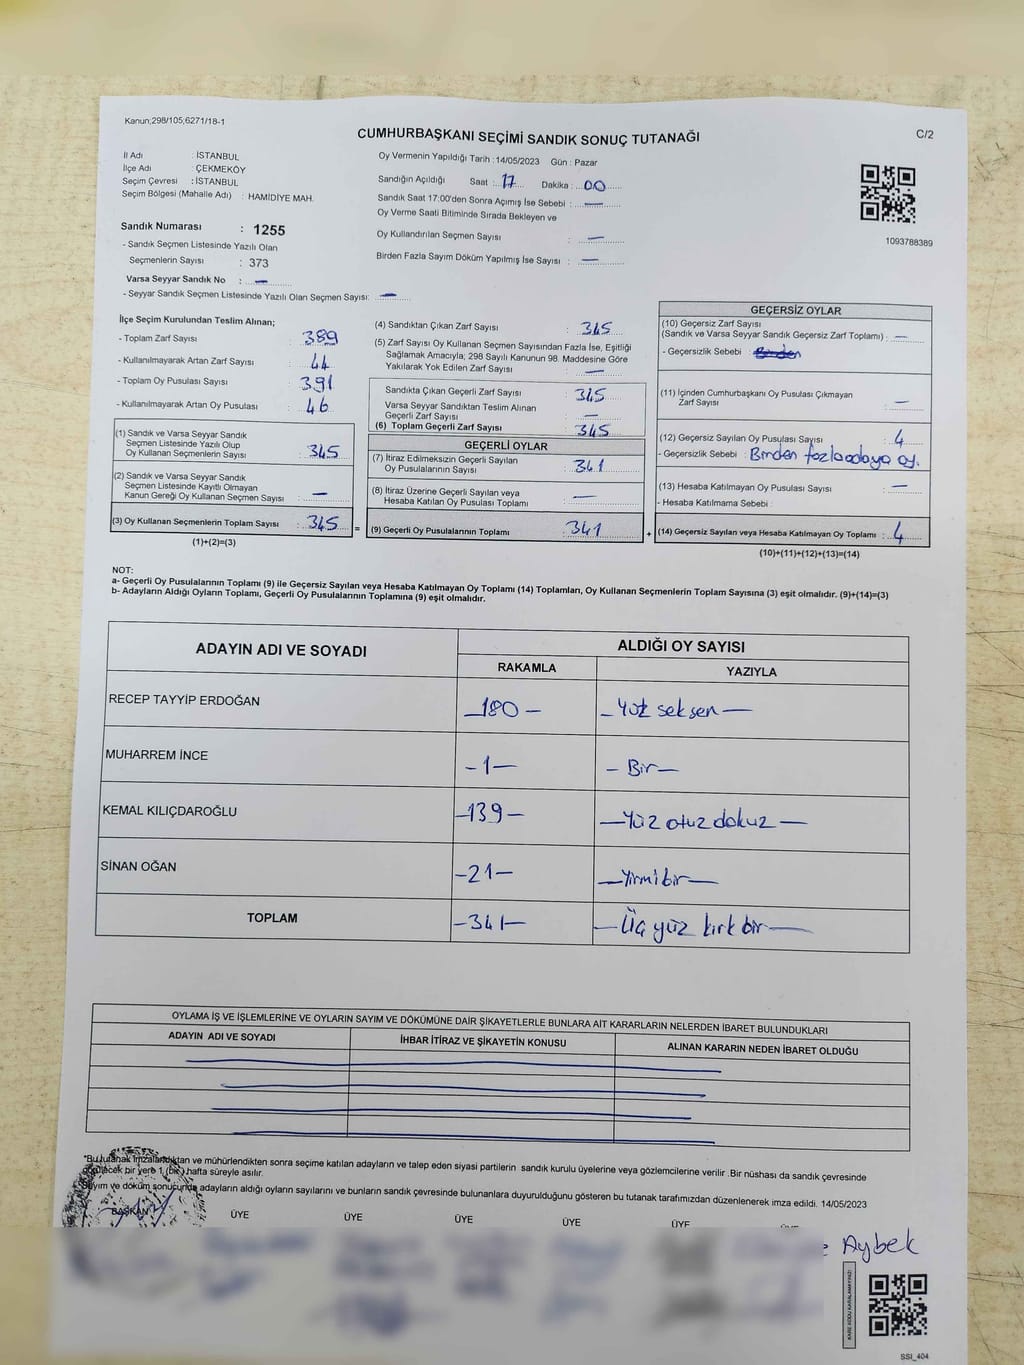 Kanun;298/105,6271/18-1
CUMHURBAŞKANI SEÇİMİ SANDIK SONUÇ TUTANAĞI
C/2
İl Adı : İSTANBUL
İlçe Adı : ÇEKMEKÖY
Seçim Çevresi : İSTANBUL
Seçim Bölgesi (Mahalle Adı) : HAMİDİYE MAH.
Oy Vermenin Yapıldığı Tarih : 14/05/2023 Gün : Pazar
Sandığın Açıldığı Saat : 17 Dakika : 00
Sandık Saat 17:00'den Sonra Açımış İse Sebebi : —
Oy Verme Saati Bitiminde Sırada Bekleyen ve
Oy Kullandırılan Seçmen Sayısı : —
Birden Fazla Sayım Döküm Yapılmış İse Sayısı : —
1093788389
Sandık Numarası : 1255
- Sandık Seçmen Listesinde Yazılı Olan
Seçmenlerin Sayısı : 373
Varsa Seyyar Sandık No : —
- Seyyar Sandık Seçmen Listesinde Yazılı Olan Seçmen Sayısı: —
İlçe Seçim Kurulundan Teslim Alınan;
- Toplam Zarf Sayısı : 389
- Kullanılmayarak Artan Zarf Sayısı : 44
- Toplam Oy Pusulası Sayısı : 391
- Kullanılmayarak Artan Oy Pusulası : 46
(1) Sandık ve Varsa Seyyar Sandık
Seçmen Listesinde Yazılı Olup
Oy Kullanan Seçmenlerin Sayısı : 345
(2) Sandık ve Varsa Seyyar Sandık
Seçmen Listesinde Kayıtlı Olmayan
Kanun Gereği Oy Kullanan Seçmen Sayısı : —
(3) Oy Kullanan Seçmenlerin Toplam Sayısı : 345
(1)+(2)=(3)
(4) Sandıktan Çıkan Zarf Sayısı : 345
(5) Zarf Sayısı Oy Kullanan Seçmen Sayısından Fazla İse, Eşitliği
Sağlamak Amacıyla; 298 Sayılı Kanunun 98. Maddesine Göre
Yakılarak Yok Edilen Zarf Sayısı : —
Sandıkta Çıkan Geçerli Zarf Sayısı : 345
Varsa Seyyar Sandıktan Teslim Alınan
Geçerli Zarf Sayısı : —
(6) Toplam Geçerli Zarf Sayısı : 345
GEÇERLİ OYLAR
(7) İtiraz Edilmeksizin Geçerli Sayılan
Oy Pusulalarının Sayısı : 341
(8) İtiraz Üzerine Geçerli Sayılan veya
Hesaba Katılan Oy Pusulası Toplamı : —
= (9) Geçerli Oy Pusulalarının Toplamı : 341
GEÇERSİZ OYLAR
(10) Geçersiz Zarf Sayısı
(Sandık ve Varsa Seyyar Sandık Geçersiz Zarf Toplamı) : —
- Geçersizlik Sebebi :
(11) İçinden Cumhurbaşkanı Oy Pusulası Çıkmayan
Zarf Sayısı : —
(12) Geçersiz Sayılan Oy Pusulası Sayısı : 4
- Geçersizlik Sebebi : Birden fazla adaya oy.
(13) Hesaba Katılmayan Oy Pusulası Sayısı : —
- Hesaba Katılmama Sebebi :
+ (14) Geçersiz Sayılan veya Hesaba Katılmayan Oy Toplamı : 4
(10)+(11)+(12)+(13)=(14)
NOT:
a- Geçerli Oy Pusulalarının Toplamı (9) ile Geçersiz Sayılan veya Hesaba Katılmayan Oy Toplamı (14) Toplamları, Oy Kullanan Seçmenlerin Toplam Sayısına (3) eşit olmalıdır. (9)+(14)=(3)
b- Adayların Aldığı Oyların Toplamı, Geçerli Oy Pusulalarının Toplamına (9) eşit olmalıdır.
ADAYIN ADI VE SOYADI ALDIĞI OY SAYISI
RAKAMLA YAZIYLA
RECEP TAYYİP ERDOĞAN —180— —Yüz seksen—
MUHARREM İNCE —1— —Bir—
KEMAL KILIÇDAROĞLU —139— —Yüz otuz dokuz—
SİNAN OĞAN —21— —Yirmi bir—
TOPLAM —341— —Üç yüz kırk bir—
OYLAMA İŞ VE İŞLEMLERİNE VE OYLARIN SAYIM VE DÖKÜMÜNE DAİR ŞİKAYETLERLE BUNLARA AİT KARARLARIN NELERDEN İBARET BULUNDUKLARI
ADAYIN ADI VE SOYADI İHBAR İTİRAZ VE ŞİKAYETİN KONUSU ALINAN KARARIN NEDEN İBARET OLDUĞU
*Bu tutanak imzalandıktan ve mühürlendikten sonra seçime katılan adayların ve talep eden siyasi partilerin sandık kurulu üyelerine veya gözlemcilerine verilir .Bir nüshası da sandık çevresinde
görülecek bir yere 1 (bir) hafta süreyle asılır.
Sayım ve döküm sonucunda adayların aldığı oyların sayılarını ve bunların sandık çevresinde bulunanlara duyurulduğunu gösteren bu tutanak tarafımızdan düzenlenerek imza edildi. 14/05/2023
BAŞKAN ÜYE ÜYE ÜYE ÜYE ÜYE ÜYE
Aybek
KARE KODU KARALAMAYINIZ!
SSI_404